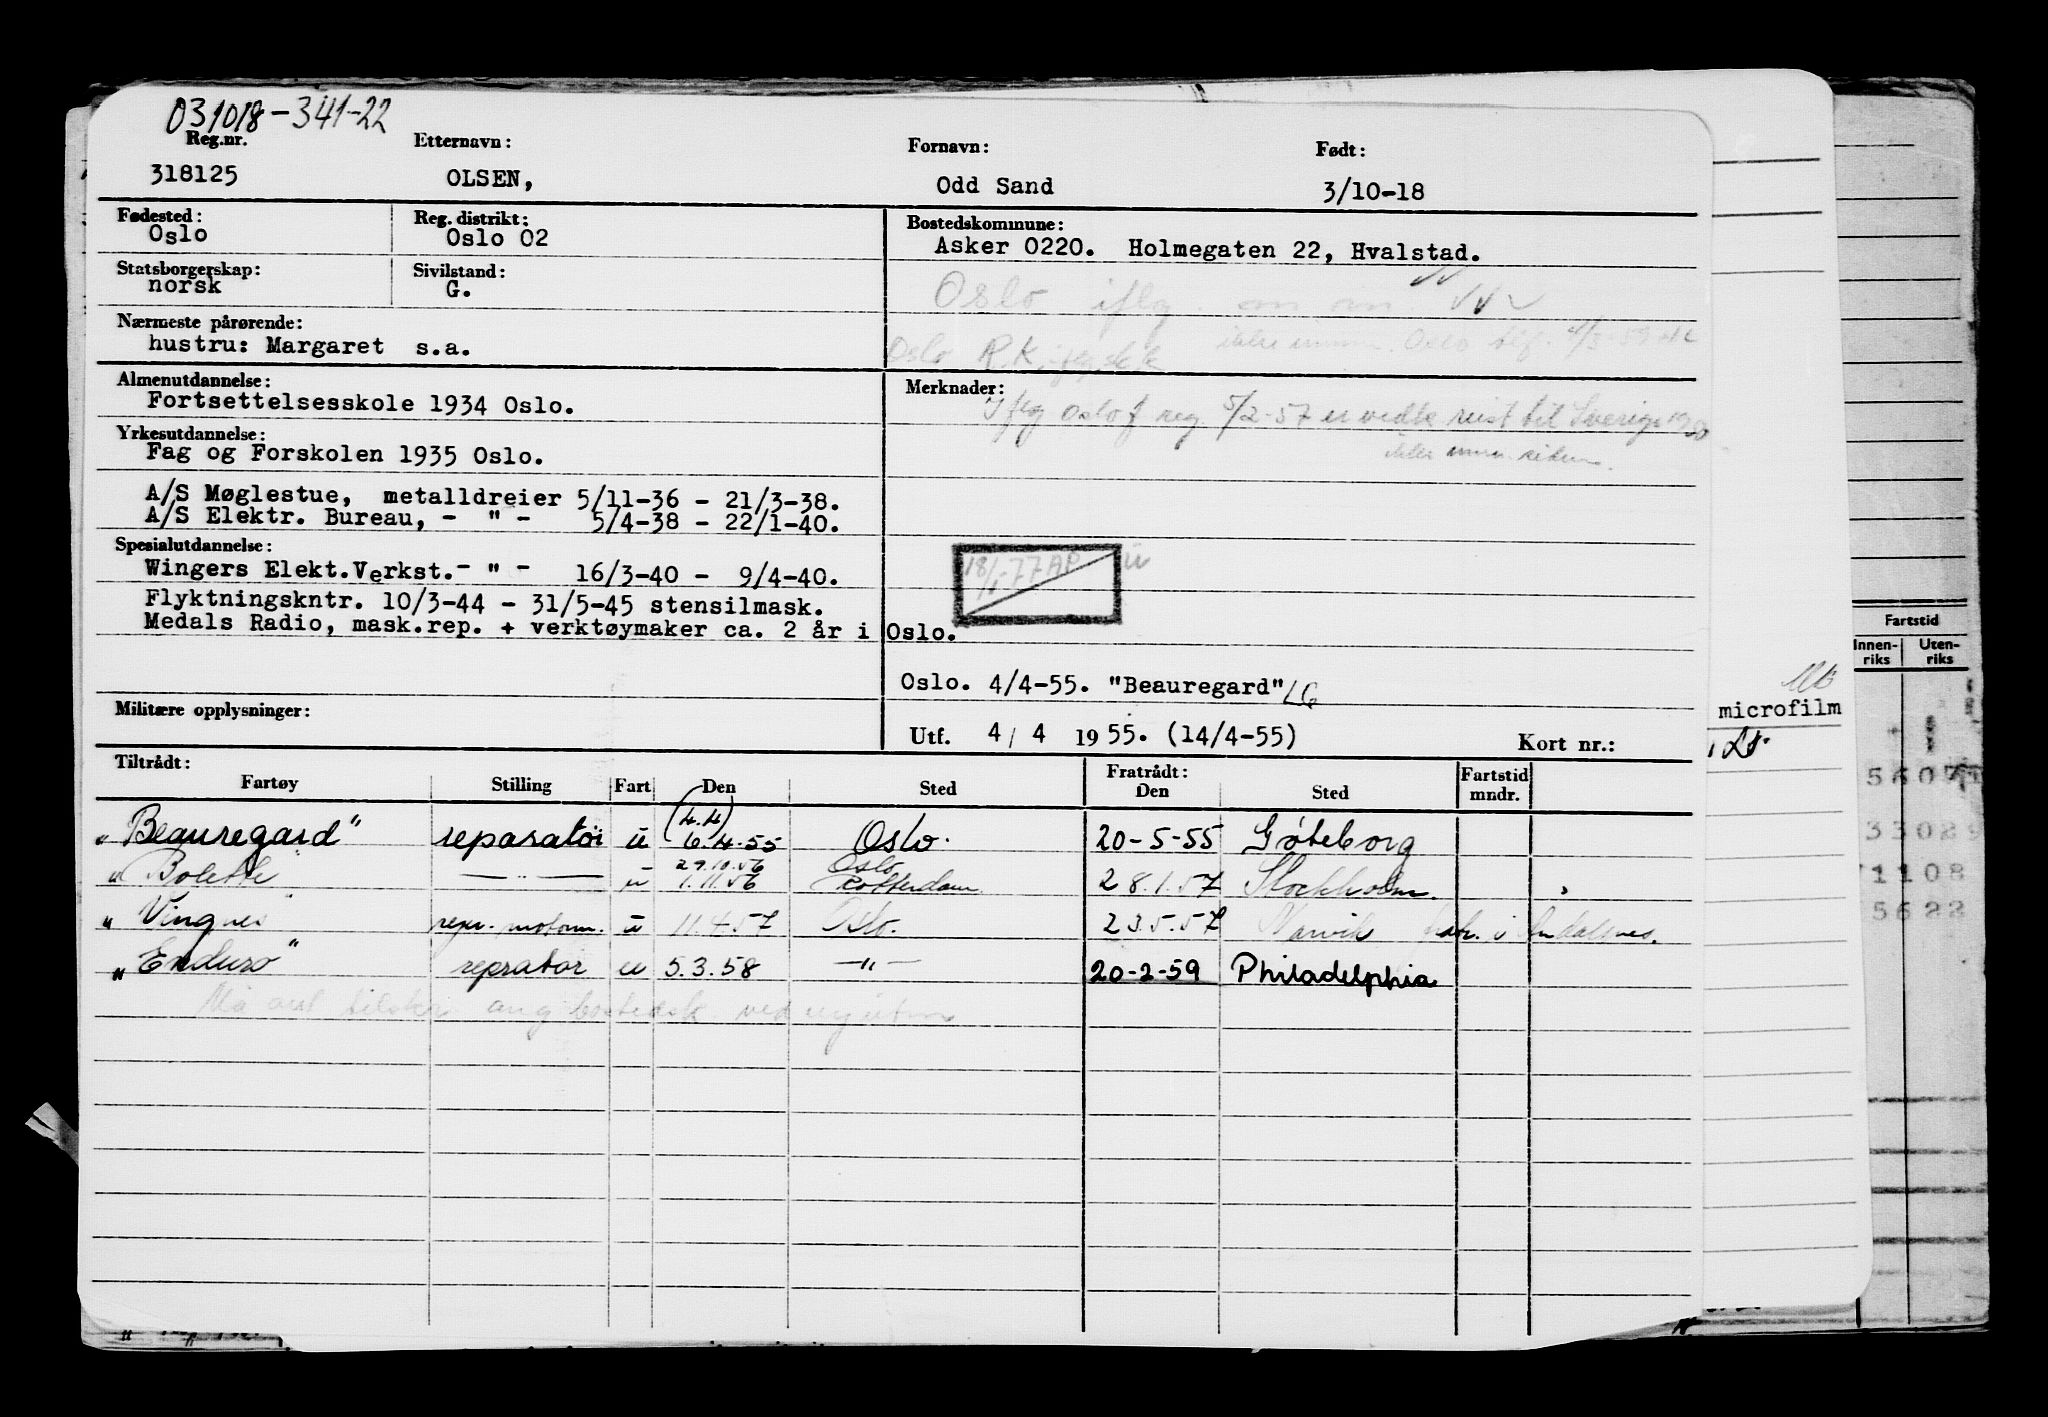 031018-341-22
Reg.nr. Etternavn: Fornavn: Født:
318125 OLSEN, Odd Sand 3/10-18
Fødested: Reg. distrikt: Bostedskommune:
Oslo Oslo 02 Asker 0220. Holmegaten 22, Hvalstad.
Statsborgerskap: Sivilstand:
norsk G.
Oslo iflg
Nærmeste pårørende:
hustru: Margaret s.a.
Oslo R.K.
Almenutdannelse: Merknader:
Fortsettelsesskole 1934 Oslo.
Iflg Oslo f reg 5/2-57 er vedk reist til Sverige
Yrkesutdannelse:
Fag og Forskolen 1935 Oslo.
A/S Møglestue, metalldreier 5/11-36 - 21/3-38.
A/S Elektr. Bureau, - " - 5/4-38 - 22/1-40.
Spesialutdannelse:
Wingers Elekt.Verkst.- " - 16/3-40 - 9/4-40.
Flyktningskntr. 10/3-44 - 31/5-45 stensilmask.
Medals Radio, mask.rep. + verktøymaker ca. 2 år i Oslo.
Oslo. 4/4-55. "Beauregard" LG
Militære opplysninger:
Utf. 4/4 1955. (14/4-55) Kort nr.:
Tiltrådt: Fratrådt: Fartstid
Fartøy Stilling Fart Den Sted Den Sted mndr.
(4.4)
"Beauregard" reparatør u 6.4.55 Oslo. 20-5-55 Gøteborg
29.10.56 Oslo
"Bolette" — " — u 1.11.56 Rotterdam 28.1.57 Stockholm.
"Vingnes" repr. motorm. u 11.4.57 Oslo. 23.5.57 Narvik fratr. i Åndalsnes.
"Enduro" reprator u 5.3.58 — " — 20-2-59 Philadelphia
microfilm
Fartstid
Innen-riks Uten-riks